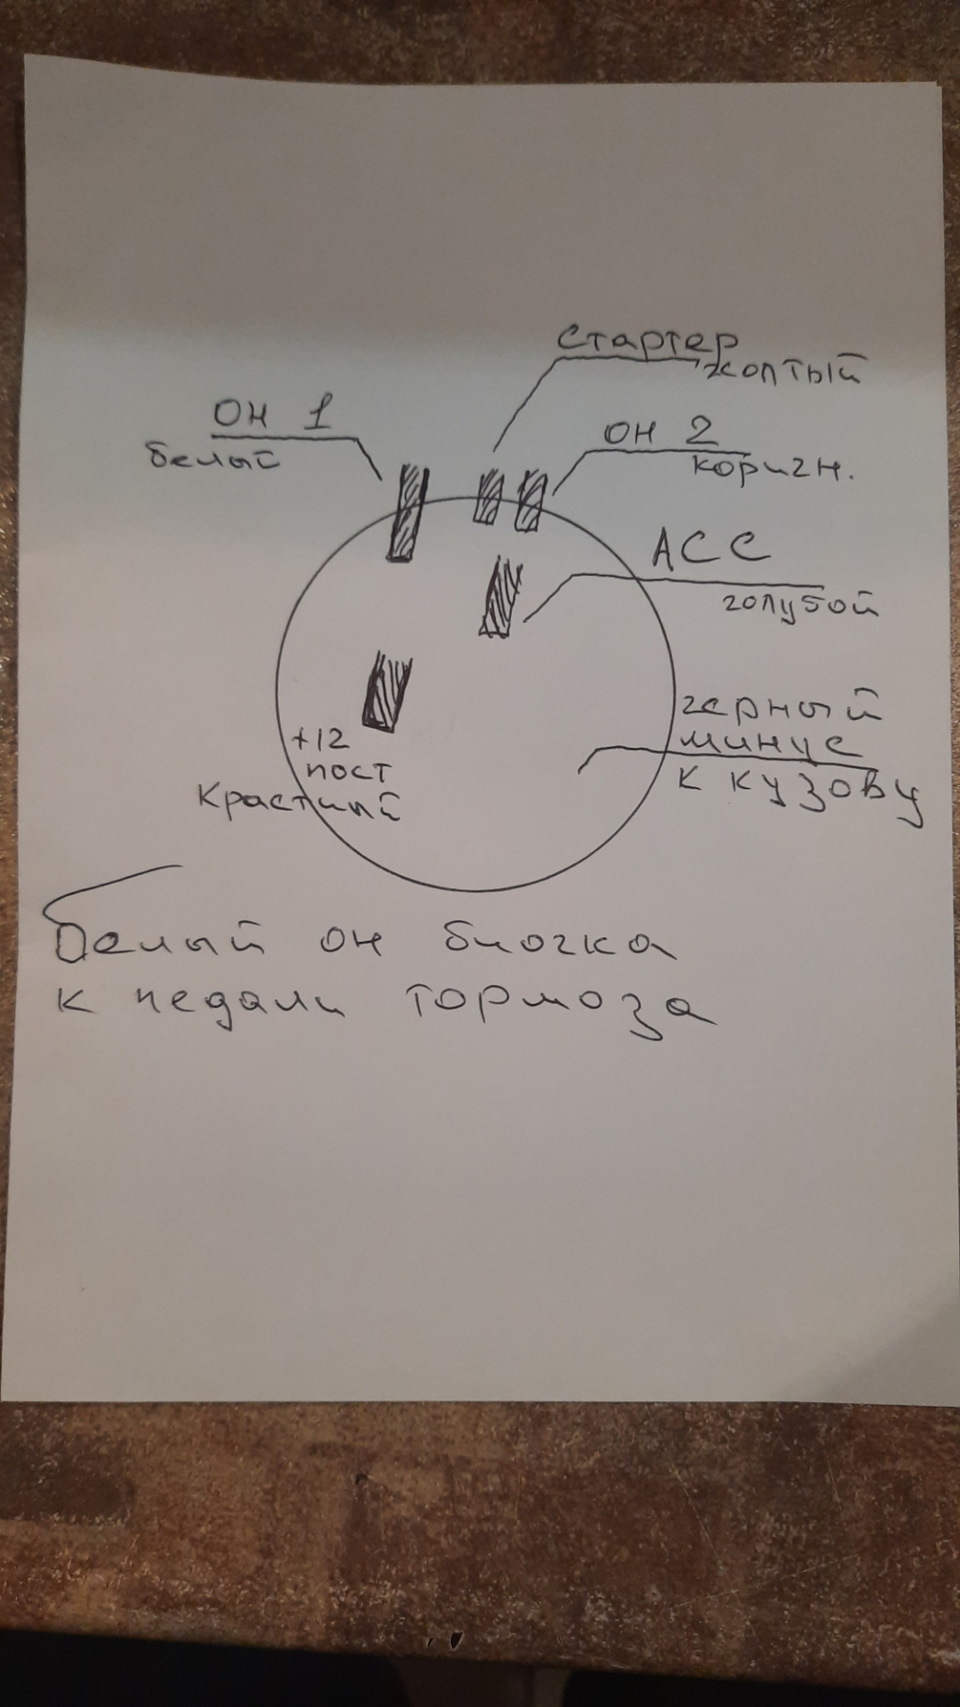 стартер
жолтый
ОН 1
белый
ОН 2
коричн.
АСС
голубой
черный
минус
к кузову
+12
пост
Красный
Белый он
к педали тормоза